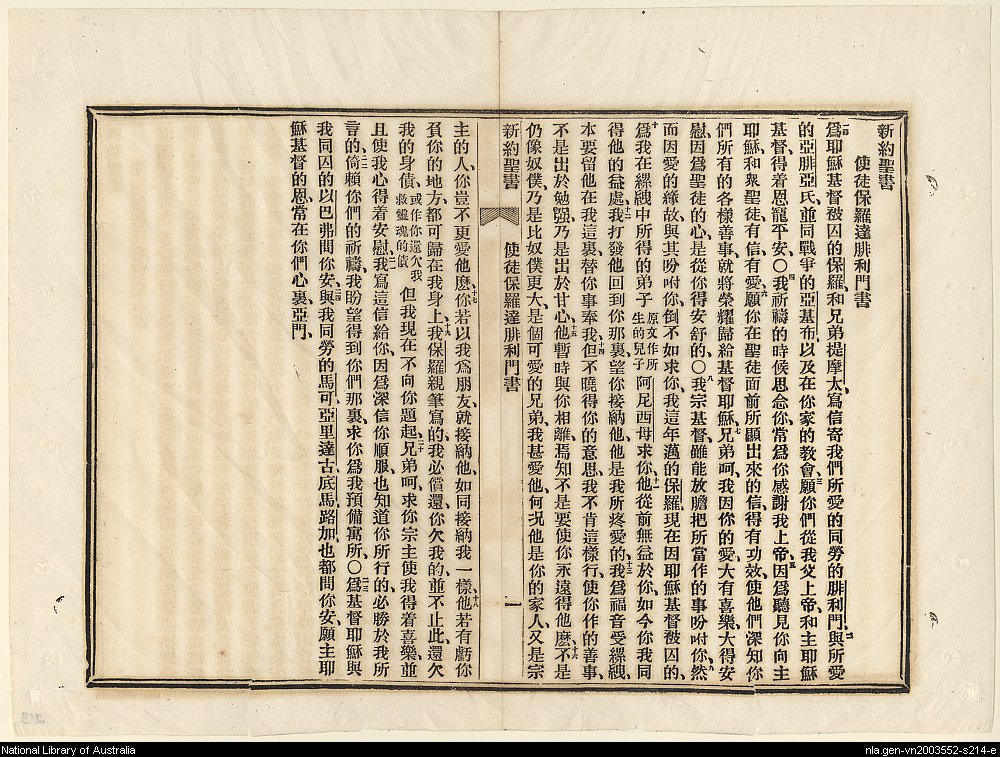 新約聖書
使徒保羅達腓利門書
一爲耶穌基督被囚的保羅、和兄弟提摩太、寫信寄我們所愛的同勞的腓利門、二與所愛
的亞腓亞氏、並同戰爭的亞基布、以及在你家的教會、三願你們從我父上帝、和主耶穌
基督、得着恩寵平安、〇四我祈禱的時候思念你、常爲你感謝我上帝、五因爲聽見你向主
耶穌和衆聖徒、有信有愛、六願你在聖徒面前所顯出來的信得有功效、使他們深知你
們所有的各樣善事、就將榮耀歸給基督耶穌、七兄弟呵、我因你的愛、大有喜樂、大得安
慰、因爲聖徒的心、是從你得安舒的、〇八我宗基督、雖能放膽把所當作的事吩咐你、九然
而因愛的緣故、與其吩咐你、倒不如求你、我這年邁的保羅、現在因耶穌基督被囚的、
十爲我在縲絏中所得的弟子原文作所生的兒子阿尼西母求你、十一他從前無益於你、如今你我同
得他的益處、十二我打發他回到你那裏、望你接納他、他是我所疼愛的、十三我爲福音受縲絏、
本要留他在我這裏、替你事奉我、十四但不曉得你的意思、我不肯這樣行、使你作的善事、
不是出於勉强、乃是出於甘心、十五他暫時與你相離、焉知不是要使你永遠得他麽、十六不是
仍像奴僕、乃是比奴僕更大、是個可愛的兄弟、我甚愛他、何况他是你的家人、又是宗
新約聖書 使徒保羅達腓利門書 一
主的人、你豈不更愛他麽、十七你若以我爲朋友、就接納他、如同接納我一樣、十八他若有虧你
負你的地方、都可歸在我身上、十九我保羅親筆寫的、我必償還、你欠我的並不止此、還欠
我的身債、或作你還欠我救靈魂的債但我現在不向你題起、二十兄弟呵、求你宗主使我得着喜樂、並
且使我心得着安慰、二一我寫這信給你、因爲深信你順服、也知道你所行的、必勝於我所
言的、二二倚賴你們的祈禱、我盼望得到你們那裏、求你爲我預備寓所、〇二三爲基督耶穌與
我同囚的以巴弗問你安、二四與我同勞的馬可、亞里達古、底馬、路加、也都問你安、二五願主耶
穌基督的恩、常在你們心裏、亞門、
National Library of Australia
nla.gen-vn2003552-s214-e